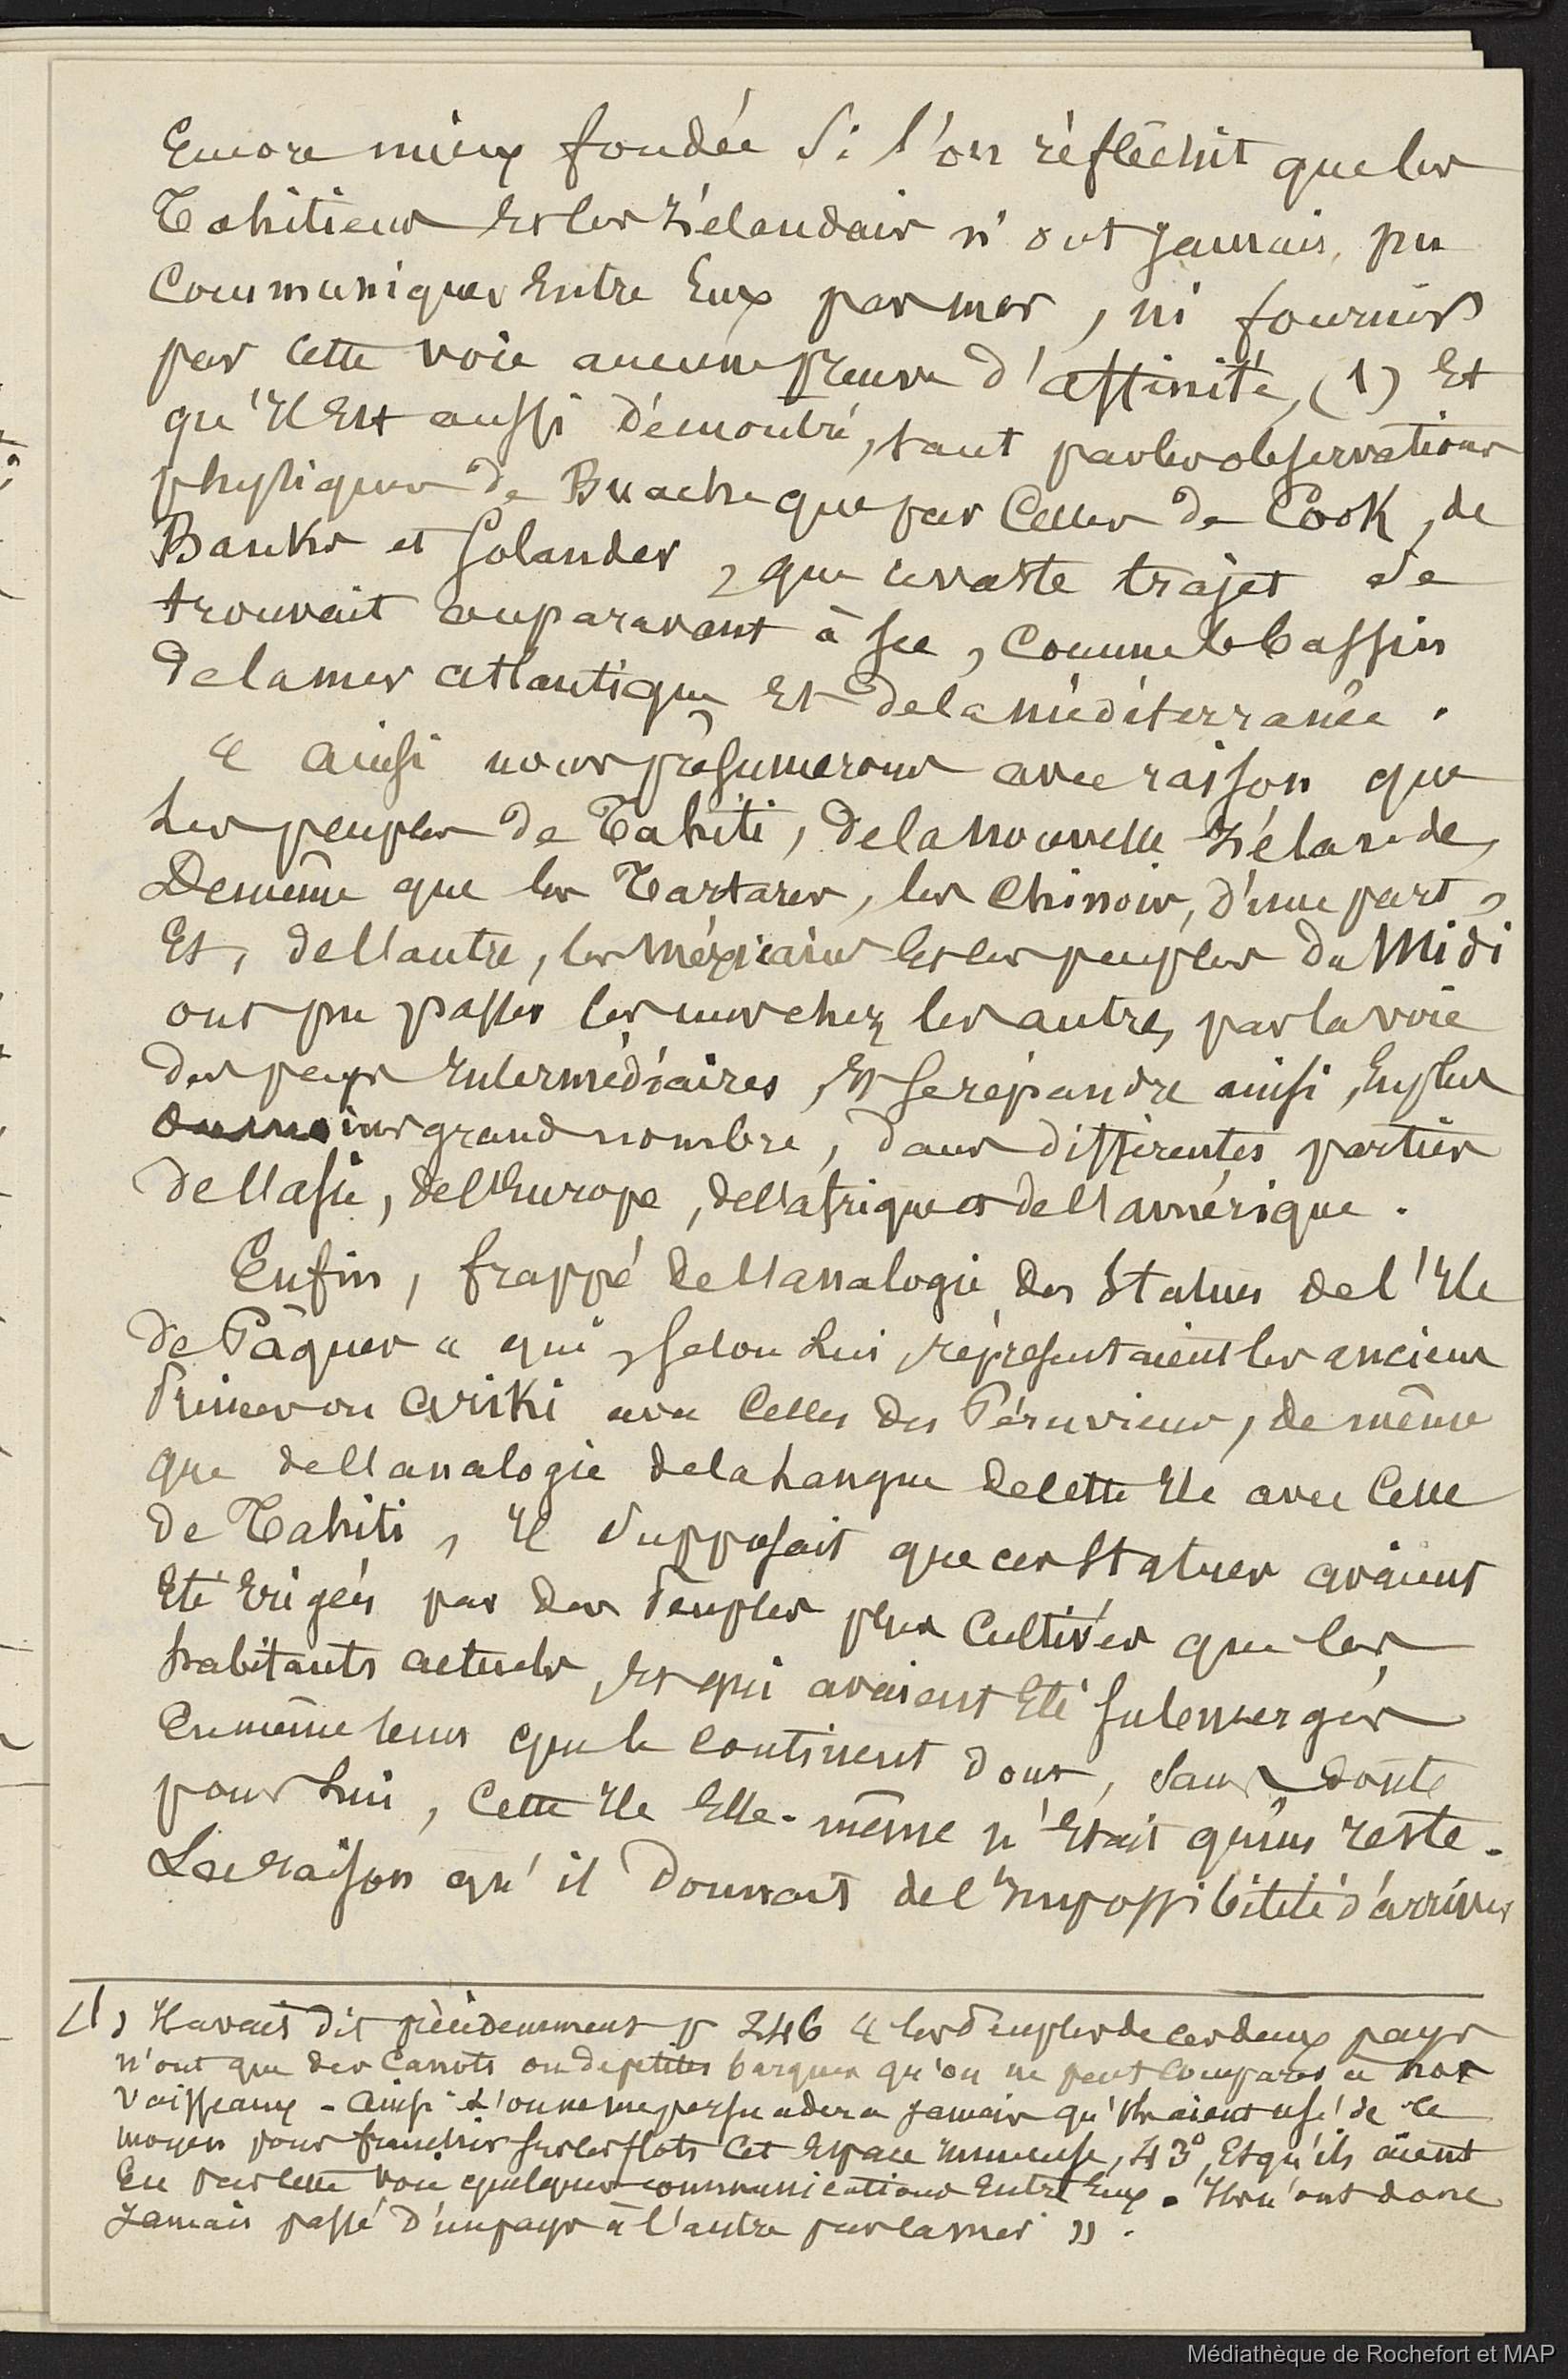 Encore mieux fondée si l'on réfléchit que les
Tahitiens et les Zélandais n'ont jamais pu
communiquer entre eux par mer, ni fournir
par cette voie aucune preuve d'affinité, (1) Et
qu'il est aussi démontré, tant par les observations
physiques de Buache que par celles de Cook, de
Banks et Solander, que ce vaste trajet se
trouvait auparavant à sec, comme le bassin
de la mer atlantique et de la méditerranée.
« ainsi nous présumerons avec raison que
les peuples de Tahiti, de la nouvelle Zélande,
De même que les Tartares, les Chinois, d'une part,
Et, de l'autre, les Méxicains et les peuples du Midi
ont pu passer les uns chez les autres, par la voie
des pays intermédiaires, et se répandre ainsi, en plus
ou moins grand nombre, dans différentes parties
de l'asie, de l'Europe, de l'afrique et de l'amérique.
Enfin, frappé de l'analogie des statues de l'Ile
de Pâques « qui, selon lui, représentaient les anciens
Princes ou Ariki avec celles des Péruviens, de même
que de l'analogie de la langue de cette île avec celle
de Tahiti, il supposait que ces statues avaient
été érigées par des Peuples plus cultivés que les
habitants actuels, et qui avaient été submergés
En même tems que le continent dont, sans doute
pour lui, cette Ile elle-même n'était qu'un reste.
La raison qu'il donnait de l'impossibilité d'arriver
(1) Il avait dit précédemment p 246 « les Peuples de ces deux pays
n'ont que des canots ou de petites barques qu'on ne peut comparer à nos
vaisseaux - ainsi l'on ne me persuadera jamais qu'ils aient usé de ce
moyen pour franchir sur les flots cet espace immense, 43°, Et qu'ils aient
Eu par cette voie quelques communications entre eux. Ils n'ont donc
jamais passé d'un pays à l'autre par la mer ».
Médiathèque de Rochefort et MAP